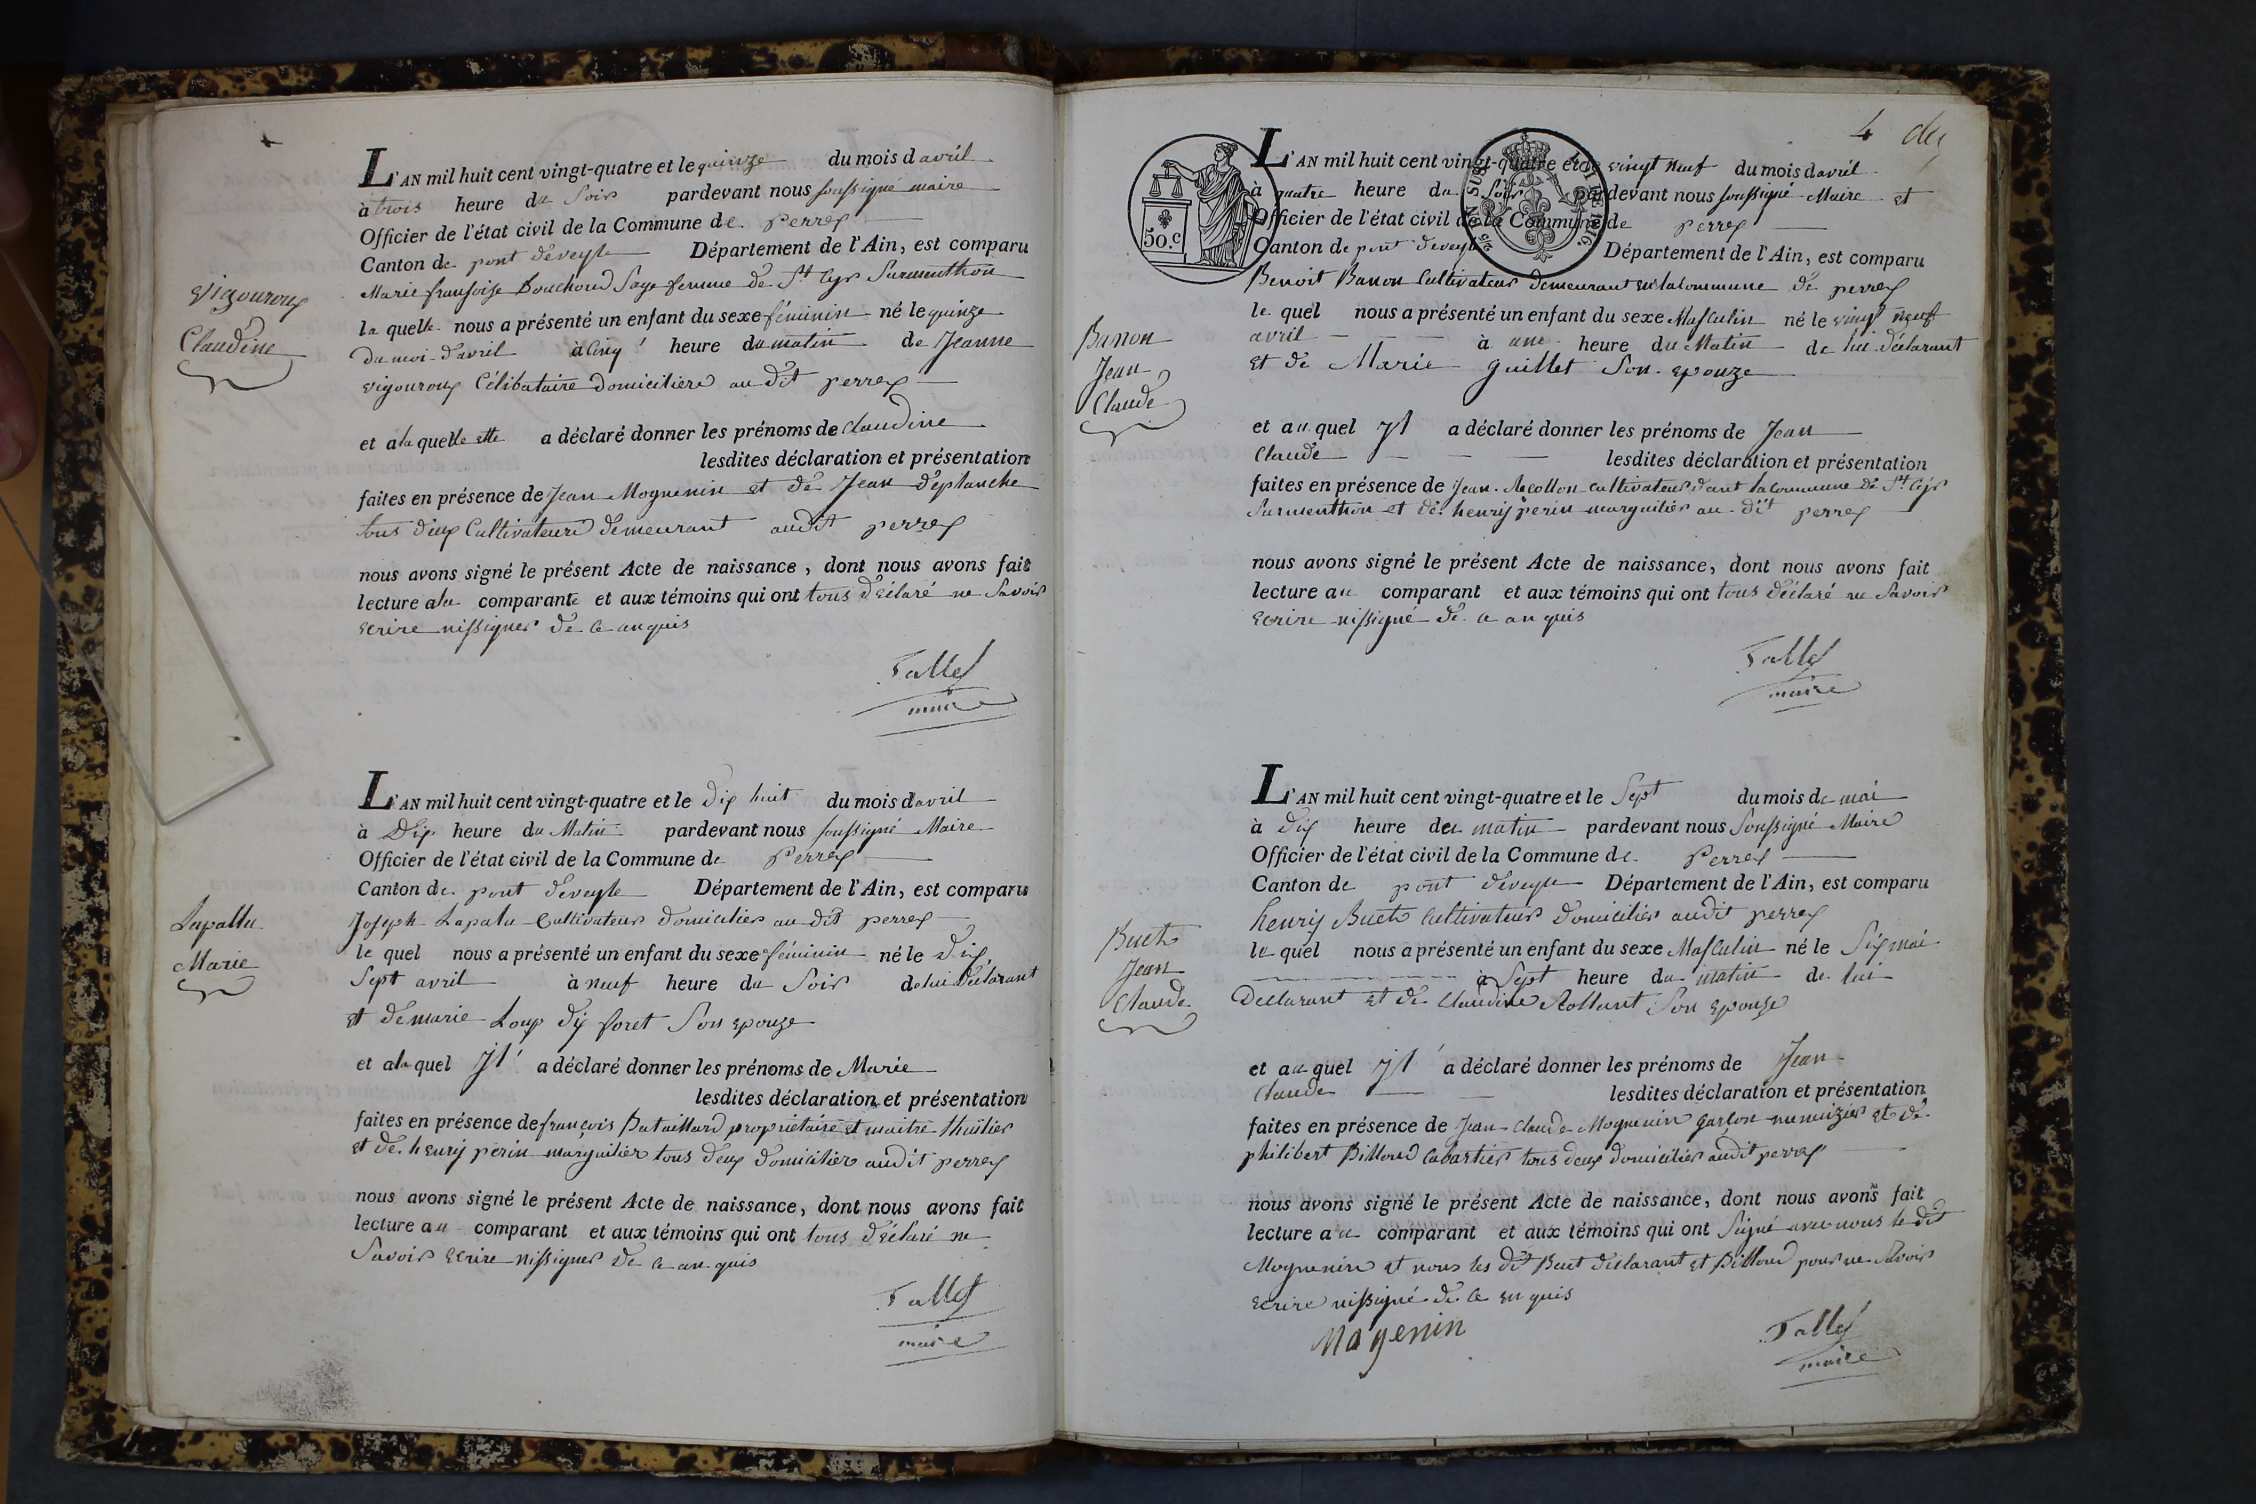 L'AN mil huit cent vingt-quatre et le quinze du mois d avril
à trois heure du Soir pardevant nous soussigné maire
Officier de l'état civil de la Commune de perrex
Canton de pont deveyle Département de l'Ain, est comparu
Marie françoise Bouchoud Sage femme de St Cyr Surmenthon
la quelle nous a présenté un enfant du sexe féminin né le quinze
du moi d'avril à Cinq heure du matin de Jeanne
vigouroux Célibataire domicilière au dit perrex
et a la quelle elle a déclaré donner les prénoms de Claudine
lesdites déclaration et présentation
faites en présence de Jean Moguenin et de Jean deplanche
tous deux Cultivateurs demeurant audit perrex
nous avons signé le présent Acte de naissance, dont nous avons fait
lecture a la comparante et aux témoins qui ont tous déclaré ne Savoir
ecrire nissigner de ce anquis
Tallet
maire
Vigouroux
Claudine
L'AN mil huit cent vingt-quatre et le dix huit du mois d avril
à Dix heure du Matin pardevant nous soussigné Maire
Officier de l'état civil de la Commune de Perrex
Canton de pont deveyle Département de l'Ain, est comparu
Joseph Lapalu Cultivateur domicilier au dit perrex
le quel nous a présenté un enfant du sexe féminin né le dix
Sept avril à neuf heure du Soir de lui déclarant
et de marie Loup dix foret Son epouze
et a la quel yl a déclaré donner les prénoms de Marie
lesdites déclaration et présentation
faites en présence de françois Bataillard propriétaire et maitre thuilier
et de henry perin marguilier tous deux domicilier audit perrex
nous avons signé le présent Acte de naissance, dont nous avons fait
lecture au comparant et aux témoins qui ont tous déclaré ne
Savoir ecrire nissigner de ce an quis
Tallet
maire
Lapallu
Marie
4
50.c
L'AN mil huit cent vingt-quatre et le vingt neuf du mois d avril
à quatre heure du Soir pardevant nous soussigné Maire et
Officier de l'état civil de la Commune de perrex
Canton de pont deveyle Département de l'Ain, est comparu
Benoit Banon Cultivateur demeurant en la Commune de perrex
le quel nous a présenté un enfant du sexe Masculin né le vingt neuf
avril à une heure du Matin de lui déclarant
et de Marie guillet Son epouze
et au quel yl a déclaré donner les prénoms de Jean
Claude lesdites déclaration et présentation
faites en présence de Jean Recollon cultivateur dant la commune de St Cyr
Surmenthon et de henry perin marguilier au dit perrex
nous avons signé le présent Acte de naissance, dont nous avons fait
lecture au comparant et aux témoins qui ont tous déclaré ne Savoir
ecrire nissigné de ce an quis
Tallet
maire
Banon
Jean
Claude
L'AN mil huit cent vingt-quatre et le Sept du mois de mai
à dix heure du matin pardevant nous Soussigné Maire
Officier de l'état civil de la Commune de Perrex
Canton de pont deveyle Département de l'Ain, est comparu
henry Buet Cultivateur domicilier audit perrex
le quel nous a présenté un enfant du sexe Masculin né le Six mai
à Sept heure du matin de lui
Declarant et de Claudine Rollant Son epouze
et au quel yl a déclaré donner les prénoms de Jean
Claude lesdites déclaration et présentation
faites en présence de Jean Claude Moguenin garson menuizier et de
philibert Billoud Cabartier tous deux domicilier audit perrex
nous avons signé le présent Acte de naissance, dont nous avons fait
lecture au comparant et aux témoins qui ont Signé avec nous le dit
Moguenin et nons les dit Buet déclarant et Billoud pour ne Savoir
ecrire nissigné de ce en quis
Magenin
Tallet
maire
Buet
Jean
Claude